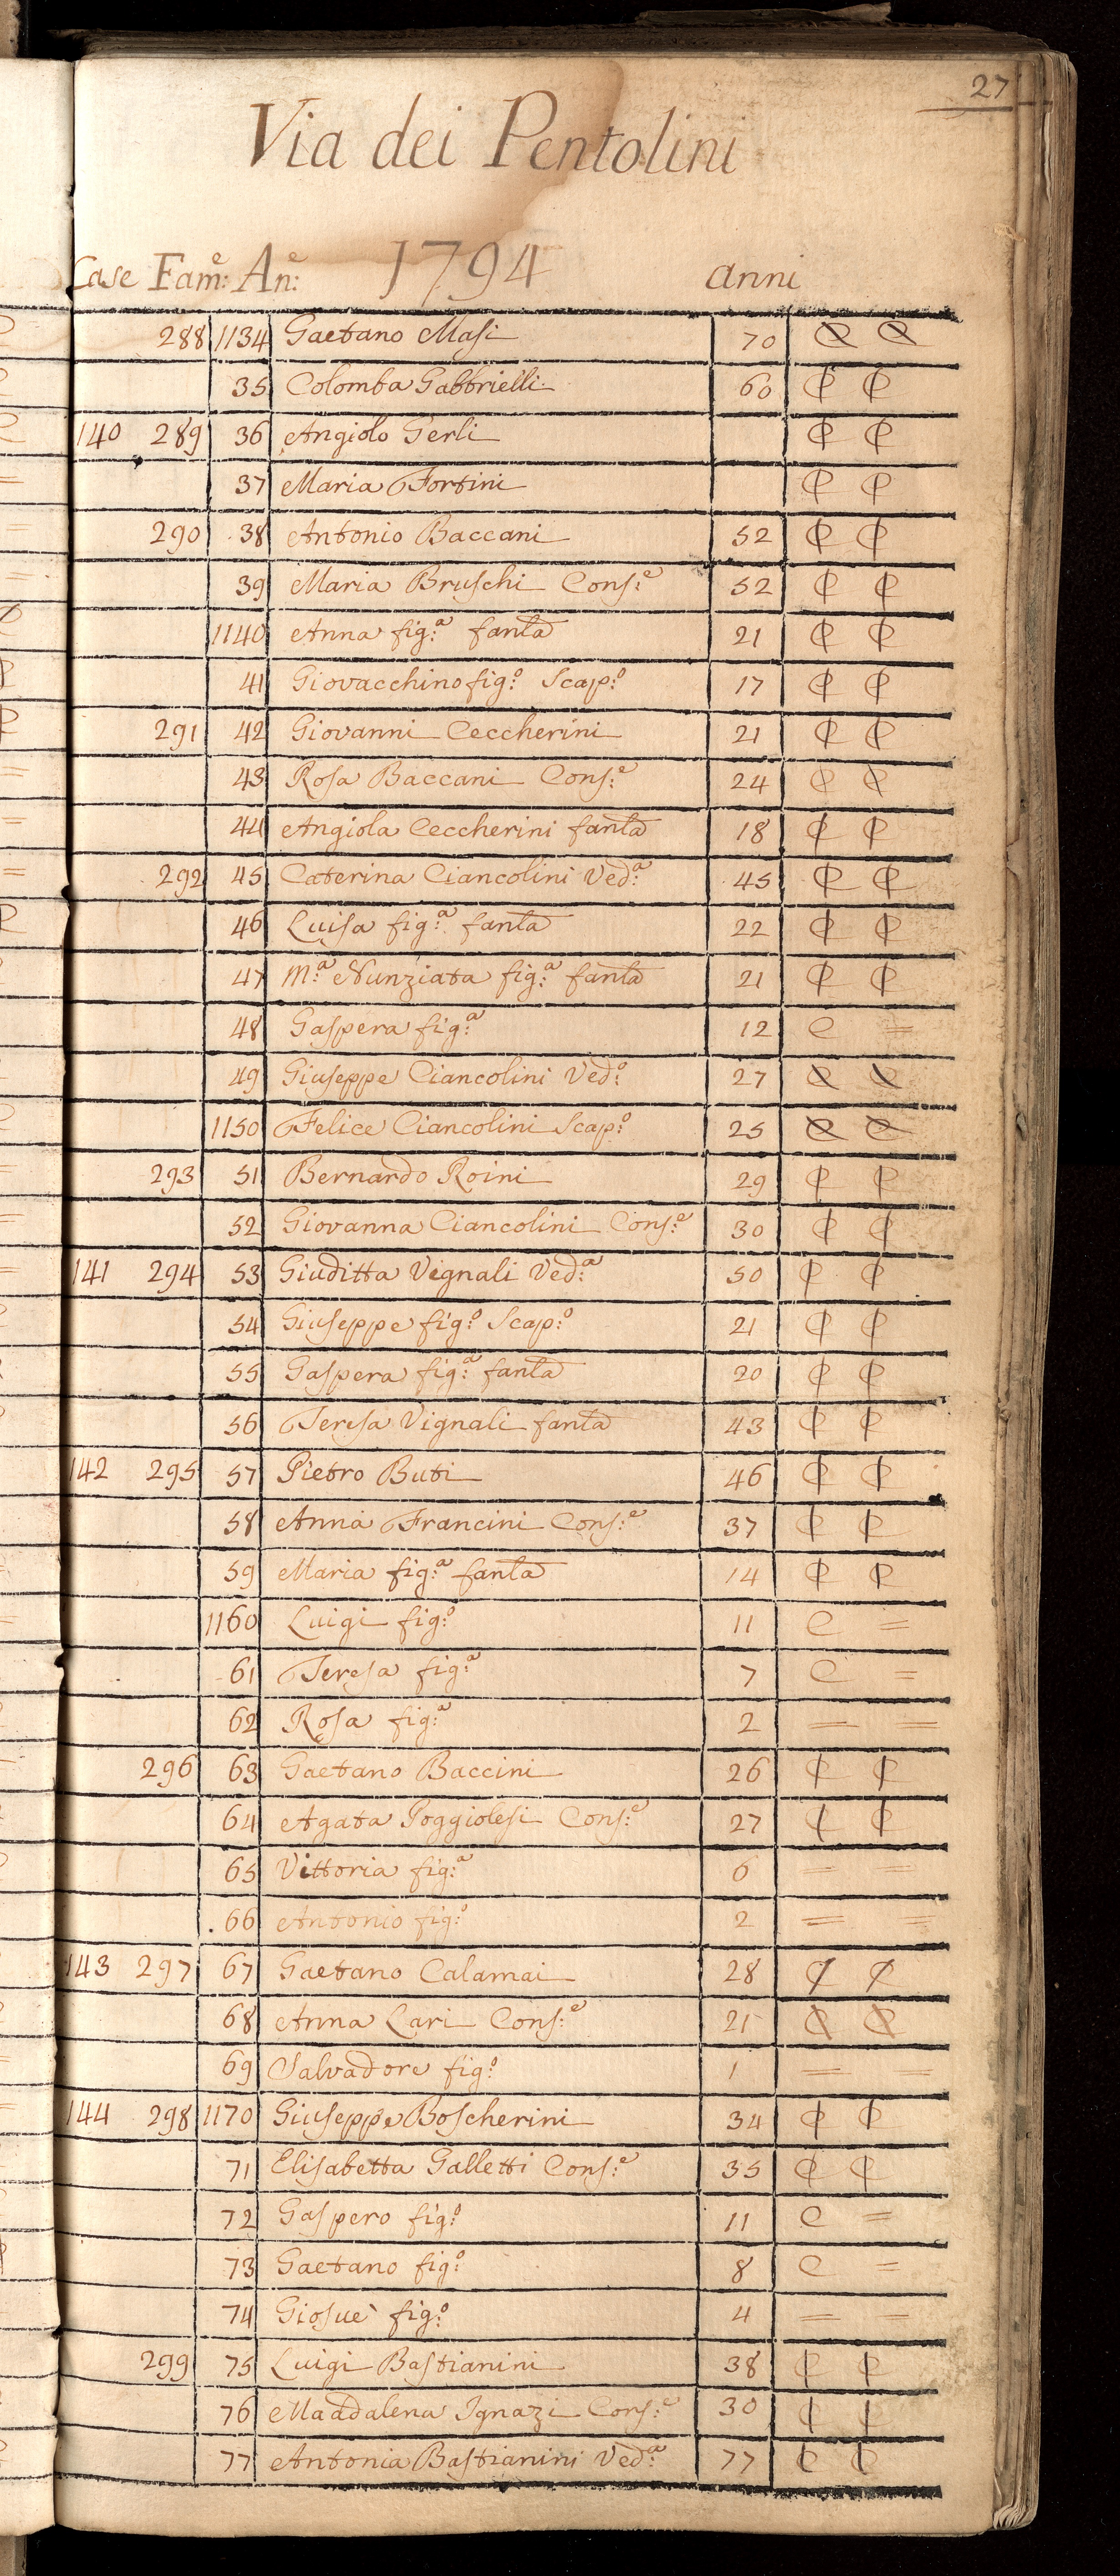 27
Via dei Pentolini
Case Fam:e An:e 1794 anni
288 1134 Gaetano Masi 70
35 Colomba Gabbrielli 60
140 289 36 Angiolo Gerli
37 Maria Fortini
290 38 Antonio Baccani 52
39 Maria Bruschi Cons:e 52
1140 Anna fig:a fanla 21
41 Giovacchino fig:o Scap:o 17
291 42 Giovanni Ceccherini 21
43 Rosa Baccani Cons:e 24
44 Angiola Ceccherini fanla 18
292 45 Caterina Ciancolini Ved:a 45
46 Luisa fig:a fanla 22
47 M:a Nunziata fig:a fanla 21
48 Gaspera fig:a 12 C =
49 Giuseppe Ciancolini Ved:o 27
1150 Felice Ciancolini Scap:o 25
293 51 Bernardo Roini 29
52 Giovanna Ciancolini Cons:e 30
141 294 53 Giuditta Vignali Ved:a 50
54 Giuseppe fig:o Scap:o 21
55 Gaspera fig:a fanla 20
56 Teresa Vignali fanla 43
142 295 57 Pietro Buti 46
58 Anna Francini Cons:e 37
59 Maria fig:a fanla 14
1160 Luigi fig:o 11 C =
61 Teresa fig:a 7 C =
62 Rosa fig:a 2 = =
296 63 Gaetano Baccini 26
64 Agata Poggiolesi Cons:e 27
65 Vittoria fig:a 6 = =
66 Antonio fig:o 2 = =
143 297 67 Gaetano Calamai 28
68 Anna Lari Cons:e 21
69 Salvadore fig:o 1 = =
144 298 1170 Giuseppe Boscherini 34
71 Elisabetta Galletti Cons:e 35
72 Gaspero fig:o 11 C =
73 Gaetano fig:o 8 C =
74 Giosuè fig:o 4 = =
299 75 Luigi Bastianini 38
76 Maddalena Ignazi Cons:e 30
77 Antonia Bastianini Ved:a 77